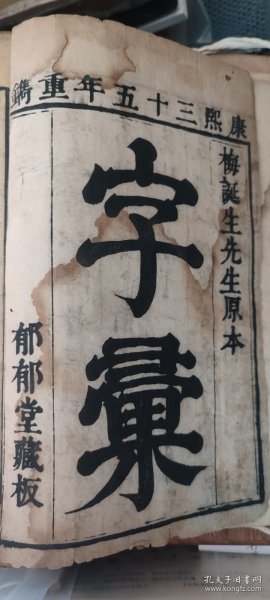 康熙三十五年重鐫
梅誕生先生原本
字彙
郁郁堂藏板
孔夫子旧书网
www.kongfz.com